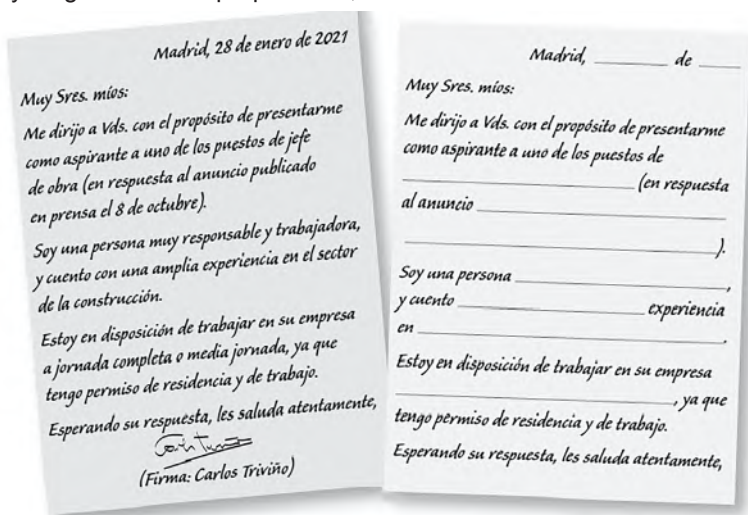 Madrid, 28 de enero de 2021
Muy Sres. míos:
Me dirijo a Vds. con el propósito de presentarme
como aspirante a uno de los puestos de jefe
de obra (en respuesta al anuncio publicado
en prensa el 8 de octubre).
Soy una persona muy responsable y trabajadora,
y cuento con una amplia experiencia en el sector
de la construcción.
Estoy en disposición de trabajar en su empresa
a jornada completa o media jornada, ya que
tengo permiso de residencia y de trabajo.
Esperando su respuesta, les saluda atentamente,
(Firma: Carlos Triviño)
Madrid, ________ de ____
Muy Sres. míos:
Me dirijo a Vds. con el propósito de presentarme
como aspirante a uno de los puestos de
__________________________ (en respuesta
al anuncio ____________________________
____________________________________).
Soy una persona ____________________________,
y cuento ____________________ experiencia
en ____________________________________.
Estoy en disposición de trabajar en su empresa
________________________________, ya que
tengo permiso de residencia y de trabajo.
Esperando su respuesta, les saluda atentamente,